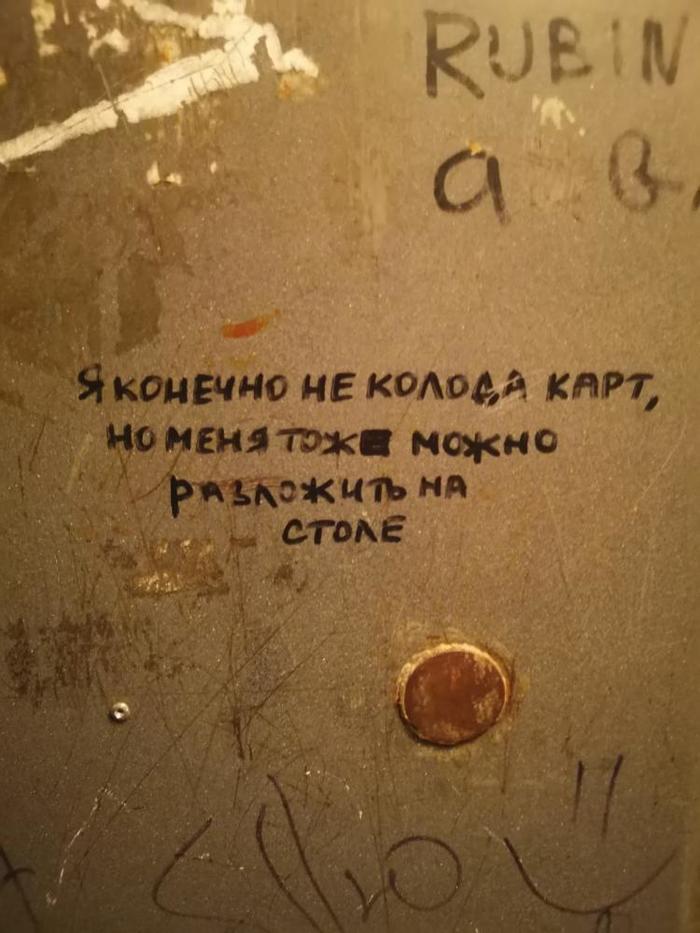 RUBIN
a
Я КОНЕЧНО НЕ КОЛОДА КАРТ,
НО МЕНЯ ТОЖЕ МОЖНО
РАЗЛОЖИТЬ НА
СТОЛЕ